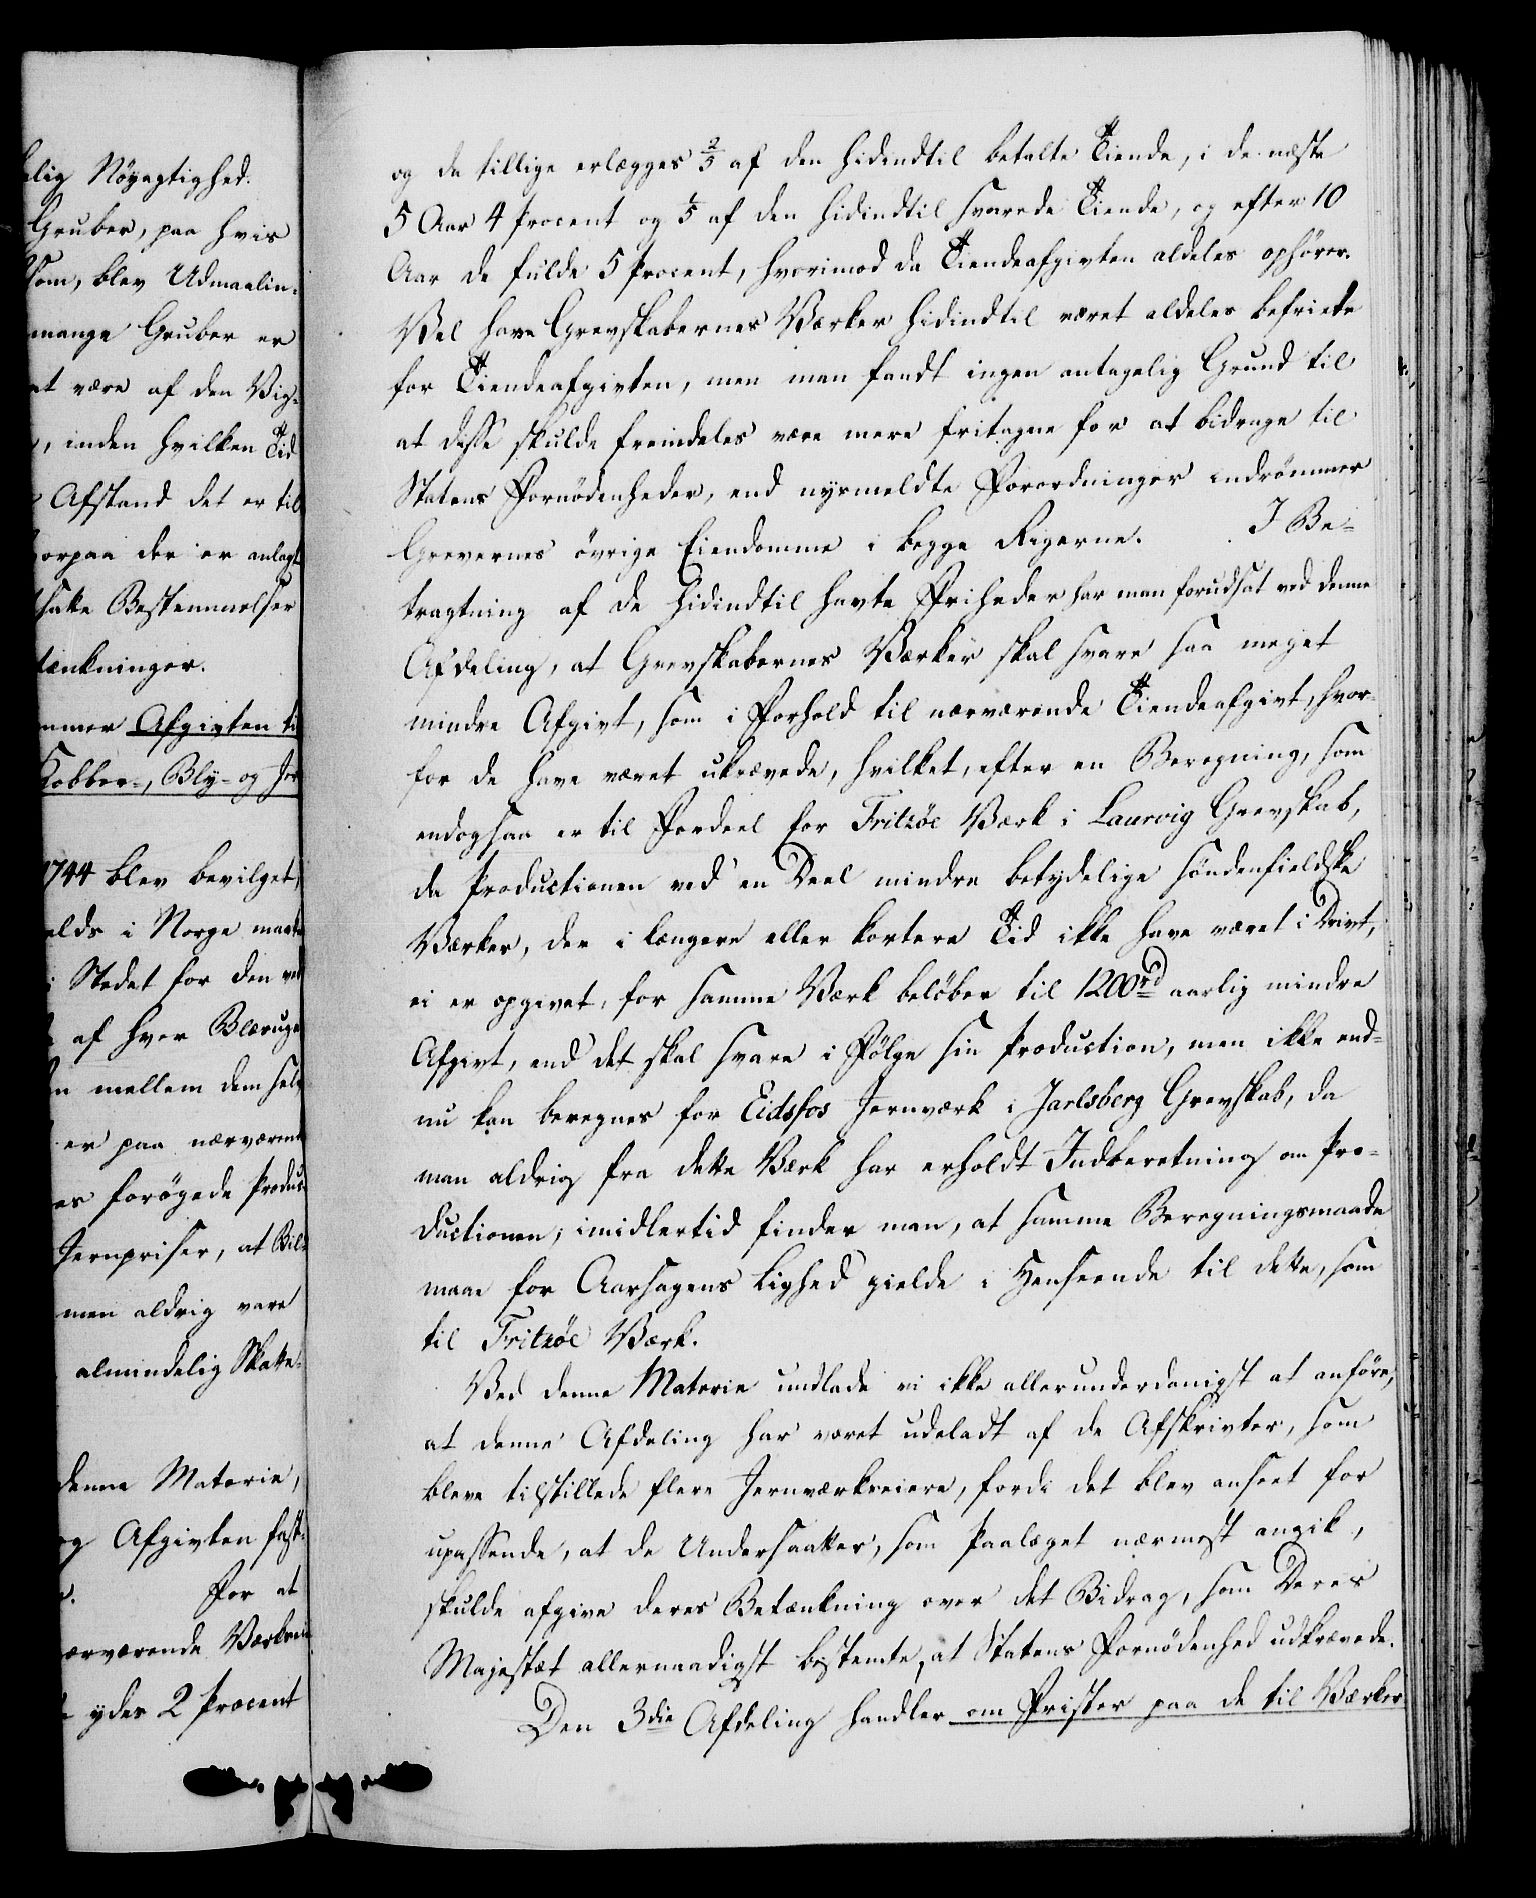 elig Nøyagtighed.
Gruber, paa hvis
som, blev Udmaalin-
mange Gruber er
at være af den Vig-
, inden hvilken Tid
Afstand det er til
orpaa der er anlagt
satte Bestemmelser
tænkninger.
mmer Afgivten ti
Kobber-, Bly- og Jer
1744 blev bevilget,
elds i Norge maatte
i Stedet for den ved
af hver Blæsuge
n mellem dem selv
er paa nærværend
es forøgede Produc-
Jernpriser, at Bil-
men aldrig være
almindelig Skatte-
denne Materie,
og Afgivten fast-
. For at
ærværende Værkerei
ydes 2 Procent
og da tillige erlægges 2/5 af den hidindtil betalte Tiende, i de næste
5 Aar 4 Procent og 1/5 af den hidindtil svarede Tiende, og efter 10
Aar de fulde 5 Procent, hvorimod da Tiendeafgivten aldeles ophører.
Vel have Grevskabernes Værker hidindtil været aldeles befriede
for Tiendeafgivten, men man fandt ingen antagelig Grund til
at disse skulde fremdeles være mere fritagne for at bidrage til
Statens Fornødenheder, end nysmeldte Forordninger indrømmer
Grevernes øvrige Eiendomme i begge Rigerne. I Be-
tragtning af de hidindtil havte Friheder har man forudsat ved denne
Afdeling, at Grevskabernes Værker skal svare saa meget
mindre Afgivt, som i Forhold til nærværende Tiendeafgivt, hvor-
for de have været ukrævede, hvilket, efter en Beregning, som
endogsaa er til Fordeel for Fritzöe Værk i Laurvig Grevskab,
da Productionen ved en Deel mindre betydelige søndenfieldske
Værker, der i længere eller kortere Tid ikke have været i Drivt,
ei er opgivet, for samme Værk beløber til 1200 rd aarlig mindre
Afgivt, end det skal svare i Følge sin Production, men ikke end-
nu kan beregnes for Eidsfos Jernværk i Jarlsberg Grevskab, da
man aldrig fra dette Værk har erholdt Indberetning om Pro-
ductionen; imidlertid finder man, at samme Beregningsmaade
maae for Aarsagens Lighed gielde i Henseende til dette, som
til Fritzöe Værk.
Ved denne Materie undlade vi ikke allerunderdanigst at anføre,
at denne Afdeling har været udeladt af de Afskrivter, som
bleve tilstillede flere Jernværkseiere, fordi det blev anseet for
upassende, at de Undersaatter, som Paalæget nærmest angik,
skulde afgive deres Betænkning over det Bidrag, som Deres
Majestæt allernaadigst bestemte, at Statens Fornødenhed udkrævede.
Den 3die Afdeling handler om Frister paa de til Værker